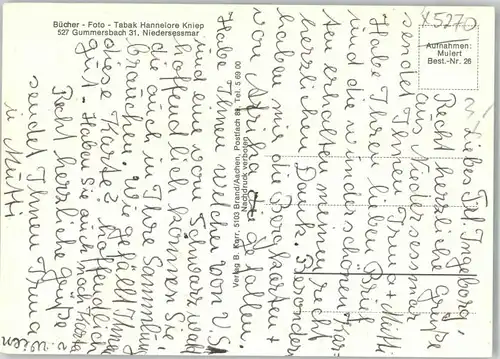 Bücher - Foto - Tabak Hannelore Kniep
527 Gummersbach 31, Niedersessmar
X5270
Aufnahmen:
Mulert
Best.-Nr. 26
Verlag B. Korr, 5103 Brand/Aachen, Postfach 89, Tel. 5 69 00
Nachdruck verboten
Liebes Frl. Ingeborg!
Recht herzliche Grüße
aus Niedersessmar
sendet Ihnen Irma + Mutti
Habe Ihren lieben Brief
und die wunderschönen Kar-
ten erhalten meinen recht
herzlichen Dank. Besonders
haben mir die Bergkarten +
von Afrika gefallen.
Habe Ihnen welche von V.S.
und eine vom Schwarzwald
hoffendlich können Sie
die auch in Ihre Sammlung
brauchen. Wie gefällt Ihnen
diese Karte? Hoffendlich
gut. Haben Sie auch noch Karten
v. Wien
Recht herzliche Grüße
sendet Ihnen Irma
u. Mutti